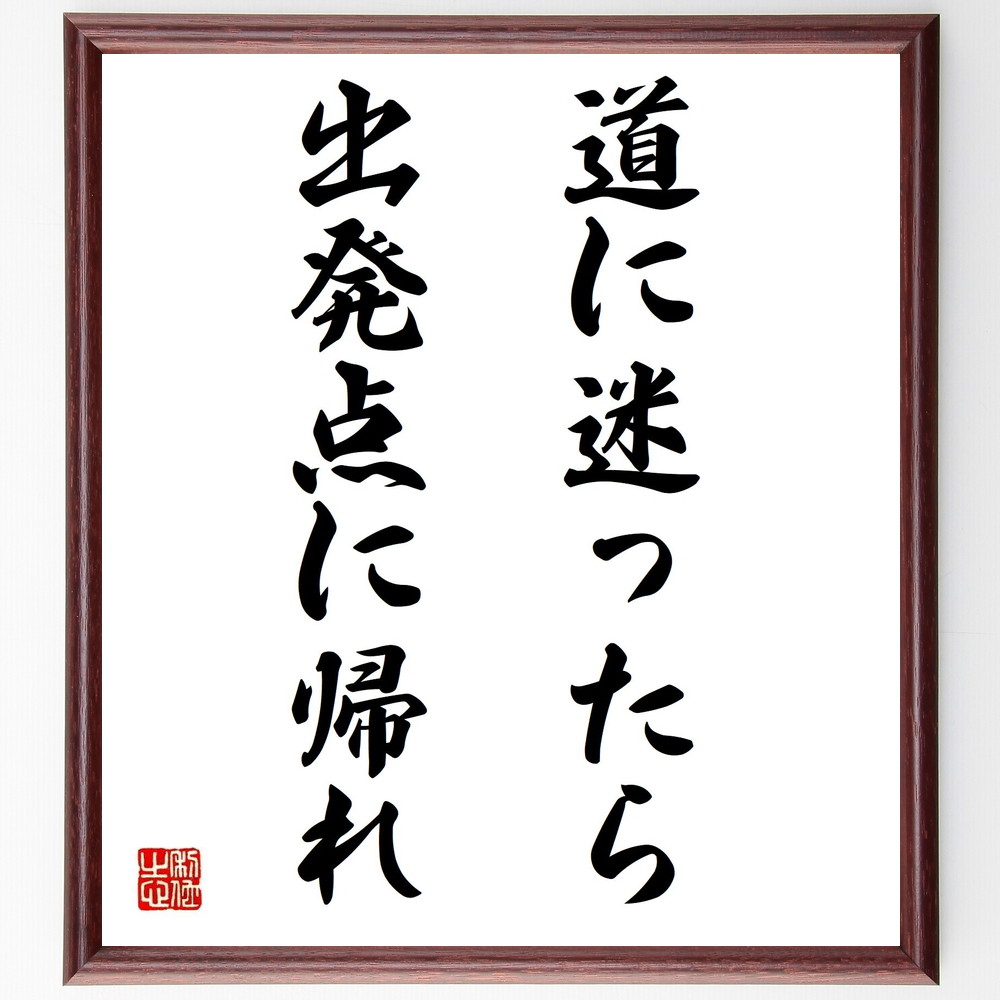 道に迷ったら
出発点に帰れ